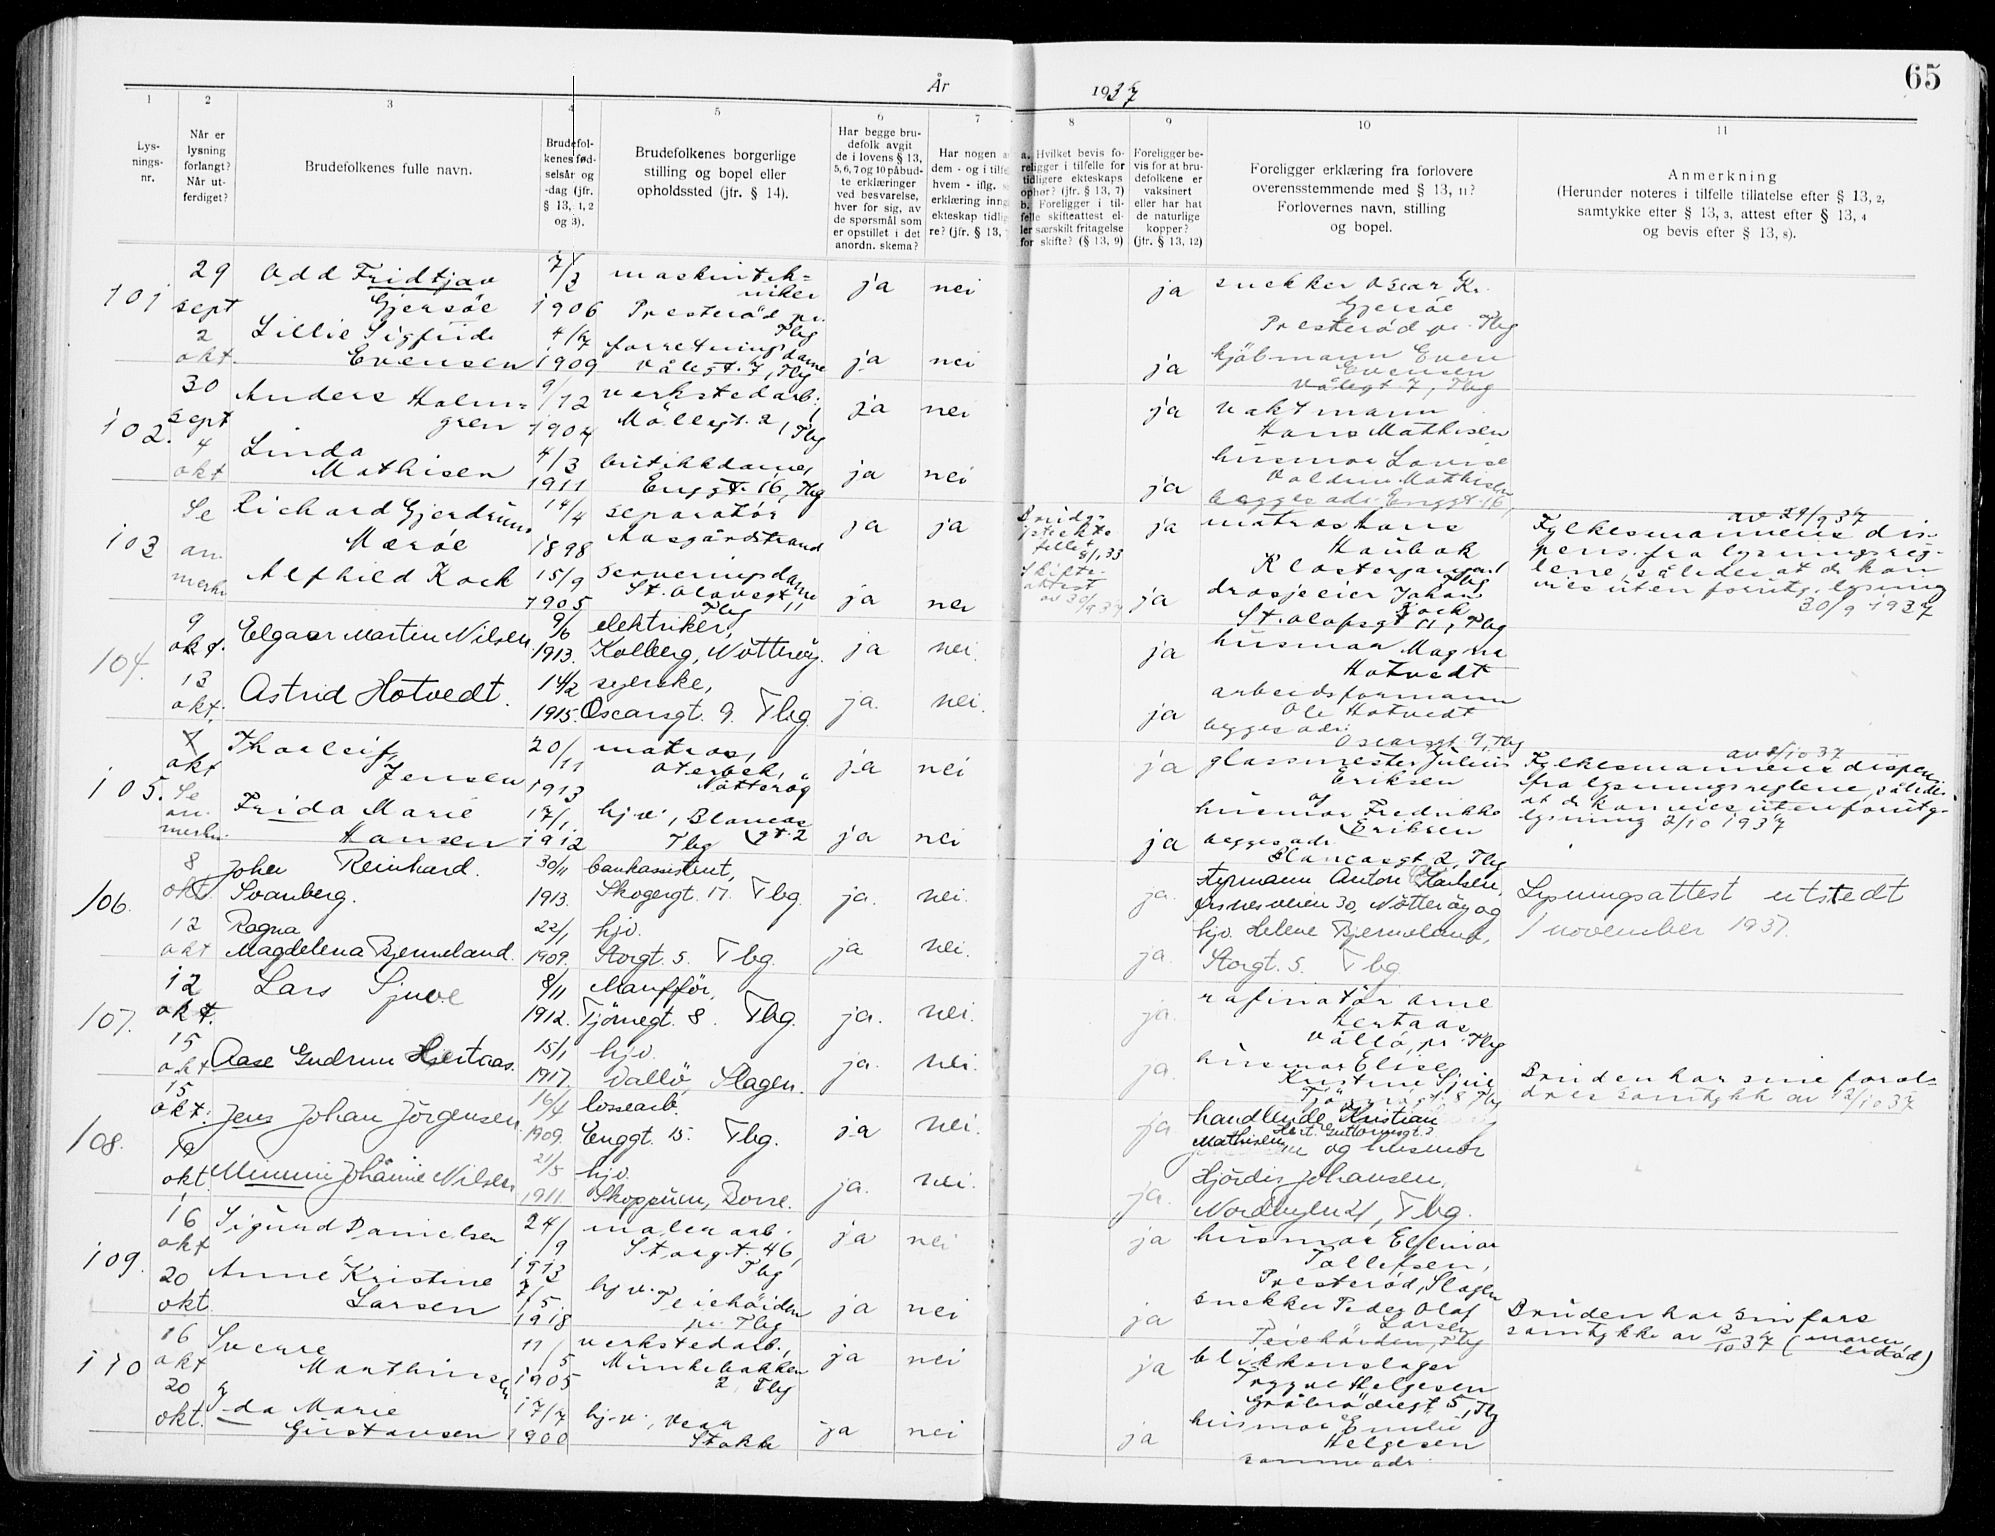 65
År 1937
1 2 3 4 5 6 7 8 9 10 11
Lys-
nings-
nr.
Når er
lysning
forlangt?
Når ut-
ferdiget?
Brudefolkenes fulle navn.
Brudefol-
kenes fød-
selsår og
-dag (jfr.
§ 13, 1, 2
og 3).
Brudefolkenes borgerlige
stilling og bopel eller
opholdssted (jfr. § 14).
Har begge bru-
defolk avgit
de i lovens § 13,
5, 6, 7 og 10 påbud-
te erklæringer
ved besvarelse,
hver for sig, av
de spørsmål som
er opstillet i det
anordn. skema?
Har nogen a
dem - og i tilfe
hvem - iflg. s
erklæring inng
ekteskap tidlig
re? (jfr. § 13,
a. Hvilket bevis fo-
religger i tilfelle for
tidligere ekteskaps
ophør? (jfr. § 13, 7)
b. Foreligger i til-
felle skifteattest el-
ler særskilt fritagelse
for skifte? (§ 13, 9)
Foreligger be-
vis for at bru-
defolkene er
vaksinert
eller har hat
de naturlige
kopper?
(jfr. § 13, 12)
Foreligger erklæring fra forlovere
overensstemmende med § 13, 11?
Forlovernes navn, stilling
og bopel.
Anmerkning
(Herunder noteres i tilfelle tillatelse efter § 13, 2,
samtykke efter § 13, 3, attest efter § 13, 4
og bevis efter § 13, 8).
101
29
sept
Odd Fridtjav
Gjersöe
7/3
1906
maskintek=
niker
Presteröd pr.
Tbg
ja nei ja
snekker Oscar Kr.
Gjersöe
Presteröd pr. Tbg
2
okt.
Lillie Sigfrid
Evensen
4/7
1909
forretningsdame
Vålegt. 7, Tbg
ja nei ja
kjöbmann Even
Evensen
Vålegt 7, Tbg
102.
30
sept
Anders Holm=
gren
9/12
1907
verkstedarb.
Möllegt. 2, Tbg
ja nei ja
vaktmann
Hans Mathisen
4
okt
Linda
Mathisen
4/3
1911
butikkdame,
Enggt. 16, Tbg
ja nei ja
husmor Lovise
Mathisen
begges adr. Enggt. 16,
103
Se
an-
merkn
Richard Gjerdrum
Maröe
14/4
1898
separatör
Aasgårdstrand
ja ja
8/1 33
av 30/9 37
ja
matros Hans
Haubak
Klostergangen
Tbg
av 29/9 37
Fylkesmannens dis-
pens. fra lysningsreg-
lene, således at de kan
vies uten forutg. lysning
30/9 1937
Alfhild Kock
15/9
1905
serveringsdame
St. Olavsgt 11
Tbg
ja nei ja
drosjeeier Johan
Kock
St. Olafsgt 11, Tbg
104.
9
okt.
Elgar Martin Nilsen
9/6
1913.
elektriker,
Kolberg, Nötteröy.
ja nei. ja
husmor Magna
Hotvedt
13
okt.
Astrid Hotvedt.
14/2
1915.
syerske,
Oscarsgt. 9. Tbg.
ja. nei. ja
arbeidsformann
Ole Hotvedt
begges adr.
Oscarsgt 9, Tbg
105.
okt
Se
an-
merkn.
Thorleif
Jensen
20/11
1913
matros,
Oterbek,
Nötteröy
ja nei ja
glassmester Julius
Eriksen
og
av 2/10 37
Fylkesmannens dispens
fra lysningsreglene, således
at de kan vies uten forutg.
lysning 2/10 1937
Frida Marie
Hansen
17/1
1912
hj.v., Blancas
gt. 2
Tbg
ja nei ja
husmor Fredrikke
Eriksen
begges adr.
Blancasgt. 2, Tbg
106.
8
okt.
Johan Reinhard.
Svanberg.
30/11
1913.
bankassistent,
Skogergt. 17. Tbg.
ja. nei. ja.
styrmann Anton Karlsen,
30, Nötteröy og
Lysningsattest utstedt
1 november 1937.
12
okt
Ragna
Magdelena Bjerneland.
22/1
1909.
hjv.
Storgt. 5. Tbg.
ja nei. ja.
hjv. Helene Bjerneland,
Storgt. 5. Tbg.
107.
12
okt.
Lars Sjuve
8/11
1912.
Tjömegt. 8. Tbg.
ja. nei. ja.
rafinatör Arne
Hertaas
Vallö, pr. Tbg
15
okt
Aase Gudrun Hjertaas.
15/1
1917.
hjv.
Vallö, Slagen.
ja. nei. ja.
husmor Elise
Kristine Sjuve
Tjömegt. 8 Tbg
Bruden har sine forel-
dres samtykke av 12/10 37
108.
15
okt.
Jens Johan Jörgensen
16/4
1909.
lossearb.
Enggt. 15. Tbg.
ja nei. ja
handlende Kristian
Mathisen Hert. Guttormsgt.
og husmor
16
okt.
Mimmi Johanne Nilsen
21/5
1911.
hjv.
Skoppum, Borre.
ja. nei. ja.
Hjördis Johansen,
Nordbyen 21, Tbg.
109.
16
okt
Sigurd Danielsen
24/9
1913
malerarb.
Storgt. 46,
Tbg
ja nei ja
husmor Ellinor
Tollefsen,
Presteröd, Slagen
20
okt.
Anne Kristine
Larsen
7/5
1918
hj.v.
Teiehöiden
pr. Tbg
ja nei ja
snekker Peder Olaf
Larsen
Teiehöiden, Tbg
Bruden har sin fars
samtykke av 12/10 37 (moren
er död)
110
16
okt
Sverre
Marthinsen
11/5
1905
verkstedarb.,
Munkebakken
2, Tbg
ja nei ja
blikkenslager
Trygve Helgesen
Gråbrödregt 5, Tbg
20
okt.
Ida Marie
Gustavsen
17/7
1900
hj.v., Vear
Stokke
ja nei ja
husmor Emilie
Helgesen
samme adr.